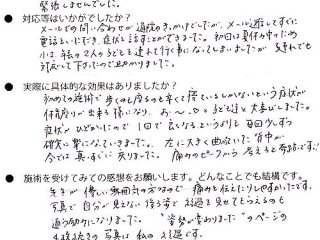 緊張しませんでした。
● 対応等はいかがでしたか？
メールでの問い合わせが通院のきっかけでしたが、メール返してすぐに
電話をいただき、症状も話すことができました。初回は夏休み中だった
小2、年長の2人の子どもを連れて行く事になってしまいましたが、それでも
対応して下さったので助かりました。
● 実際に具体的な効果はありましたか？
初めての施術で歩くのも座るのも辛くて寝ているしかないという症状が
何歩かり出来る様になり、お〜、と子どもと大喜びしました。
症状がひどかったので1回で良くなるというより毎回少しずつ
確実に繋っていきました。左に大きく曲がっていた背中が
今では真っすぐに戻りました。痛みのピークから考えると奇跡です！
● 施術を受けてみての感想をお願いします。どんなことでも結構です。
先生が優しい雰囲気の方なので痛みを伝えたりしやすかったです。
写真で自分が見えない後ろ姿で経過を見せてもらえるのも
通う励みになりました。"姿勢が変わりました"のページの
4枚続きの写真は私の経過です。